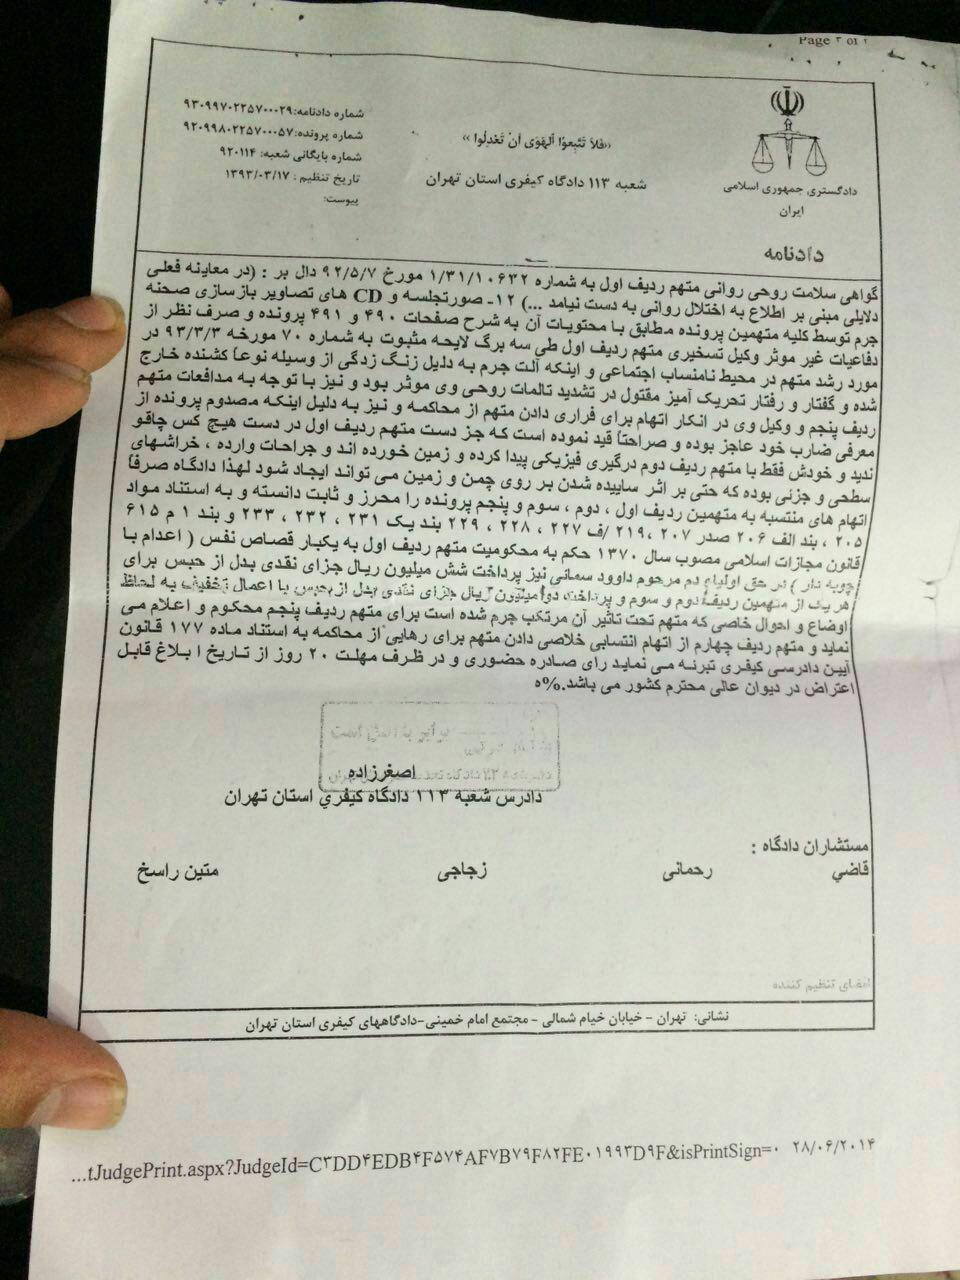 Page ۲ of ۲
دادگستری جمهوری اسلامی
ایران
«فَلاَ تَتَّبِعُوا الْهَوَى أَنْ تَعْدِلُوا»
شعبه ۱۱۳ دادگاه کیفری استان تهران
شماره دادنامه:۹۳۰۹۹۷۰۲۲۵۷۰۰۰۲۹
شماره پرونده:۹۲۰۹۹۸۰۲۲۵۷۰۰۰۵۷
شماره بایگانی شعبه: ۹۲۰۱۱۴
تاریخ تنظیم : ۱۳۹۳/۰۳/۱۷
پیوست:
دادنامه
گواهی سلامت روحی روانی متهم ردیف اول به شماره ۱/۳۱/۱۰۶۳۲ مورخ ۹۲/۵/۷ دال بر : (در معاینه فعلی
دلایلی مبنی بر اطلاع به اختلال روانی به دست نیامد ...) ۱۲- صورتجلسه و CD های تصاویر بازسازی صحنه
جرم توسط کلیه متهمین پرونده مطابق با محتویات آن به شرح صفحات ۴۹۰ و ۴۹۱ پرونده و صرف نظر از
دفاعیات غیر موثر وکیل تسخیری متهم ردیف اول طی سه برگ لایحه مثبوت به شماره ۷۰ مورخه ۹۳/۳/۳ در
مورد رشد متهم در محیط نامنساب اجتماعی و اینکه آلت جرم به دلیل زنگ زدگی از وسیله نوعاً کشنده خارج
شده و گفتار و رفتار تحریک آمیز مقتول در تشدید تالمات روحی وی موثر بود و نیز با توجه به مدافعات متهم
ردیف پنجم و وکیل وی در انکار اتهام برای فراری دادن متهم از محاکمه و نیز به دلیل اینکه مصدوم پرونده از
معرفی ضارب خود عاجز بوده و صراحتاً قید نموده است که جز دست متهم ردیف اول در دست هیچ کس چاقو
ندید و خودش فقط با متهم ردیف دوم درگیری فیزیکی پیدا کرده و زمین خورده اند و جراحات وارده ، خراشهای
سطحی و جزئی بوده که حتی بر اثر ساییده شدن بر روی چمن و زمین می تواند ایجاد شود لهذا دادگاه صرفاً
اتهام های منتسبه به متهمین ردیف اول ، دوم ، سوم و پنجم پرونده را محرز و ثابت دانسته و به استناد مواد
۲۰۵ ، بند الف ۲۰۶ صدر ۲۰۷ ، ۲۱۹ /ف ۲۲۷ ، ۲۲۸ ، ۲۲۹ بند یک ۲۳۱ ، ۲۳۲ ، ۲۳۳ و بند ۱ م ۶۱۵
قانون مجازات اسلامی مصوب سال ۱۳۷۰ حکم به محکومیت متهم ردیف اول به یکبار قصاص نفس ( اعدام با
چوبه دار ) در حق اولیاء دم مرحوم داوود سمانی نیز پرداخت شش میلیون ریال جزای نقدی بدل از حبس برای
هر یک از متهمین ردیف دوم و سوم و پرداخت دو میلیون ریال جزای نقدی بدل از حبس با اعمال تخفیف به لحاظ
اوضاع و احوال خاصی که متهم تحت تاثیر آن مرتکب جرم شده است برای متهم ردیف پنجم محکوم و اعلام می
نماید و متهم ردیف چهارم از اتهام انتسابی خلاصی دادن متهم برای رهایی از محاکمه به استناد ماده ۱۷۷ قانون
آیین دادرسی کیفری تبرئه می نماید رای صادره حضوری و در ظرف مهلت ۲۰ روز از تاریخ ابلاغ قابل
اعتراض در دیوان عالی محترم کشور می باشد.%ه
اصغرزاده
دادرس شعبه ۱۱۳ دادگاه کیفري استان تهران
مستشاران دادگاه :
قاضي رحمانی زجاجی متین راسخ
امضای تنظیم کننده
نشانی: تهران - خیابان خیام شمالی - مجتمع امام خمینی-دادگاههای کیفری استان تهران
...tJudgePrint.aspx?JudgeId=C۳DD۴EDB۴F۵۷۴AF۷B۷۹F۸۲FE۰۱۹۹۳D۹F&isPrintSign=۰ ۲۸/۰۶/۲۰۱۴